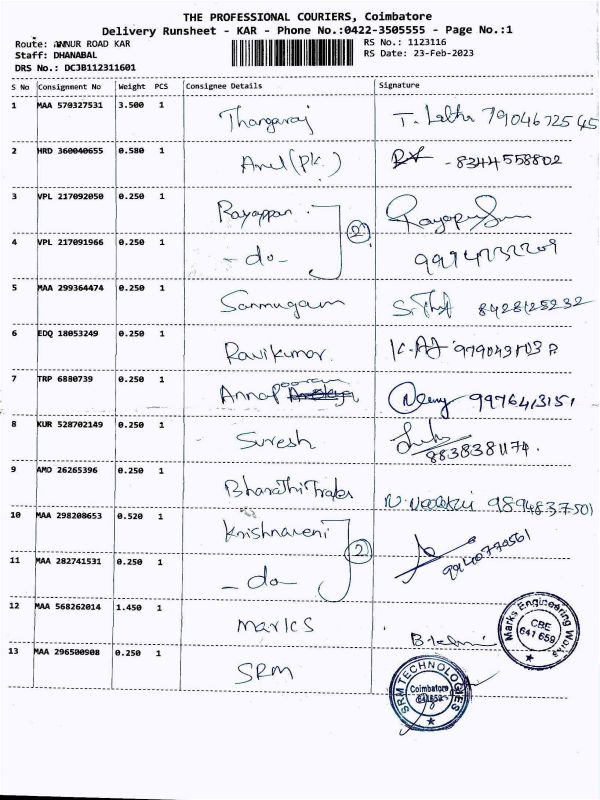 THE PROFESSIONAL COURIERS, Coimbatore
Delivery Runsheet - KAR - Phone No.:0422-3505555 - Page No.:1
Route: ANNUR ROAD KAR
RS No.: 1123116
Staff: DHANABAL
RS Date: 23-Feb-2023
DRS No.: DCJB112311601
S No Consignment No Weight PCS Consignee Details Signature
1 MAA 570327531 3.500 1 Thangaraj
2 HRD 360040655 0.580 1 Arul (pk.) - 8344558802
3 VPL 217092050 0.250 1 Rayappan
2
4 VPL 217091966 0.250 1 - do -
5 MAA 299364474 0.250 1 Sanmugam 8428125232
6 EDQ 18053249 0.250 1 Ravikumar.
7 TRP 6880739 0.250 1 9976413151
8 KUR 528702149 0.250 1 Suresh
8838381174.
9 AMD 26265396 0.250 1 9894837501
10 MAA 298208653 0.520 1 Krishnaveni
2
11 MAA 282741531 0.250 1 - do -
12 MAA 568262014 1.450 1 marks
Marks Engineering Works
CBE
641 659
13 MAA 296500908 0.250 1 SRM
SRM TECHNOLOGIES
Coimbatore